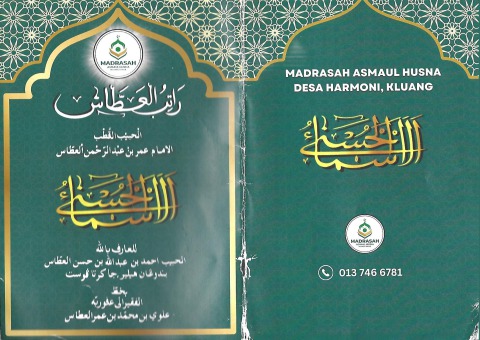 MADRASAH
راتب العطاس
الحبيب القطب
الامام عمر بن عبدالرحمن العطاس
الأسماء الحسنى
للعارف بالله
الحبيب احمد بن عبدالله بن حسن العطاس
بخط
الفقير الى عفوربه
علوي بن محمد بن عمر العطاس
MADRASAH ASMAUL HUSNA
DESA HARMONI, KLUANG
الأسماء الحسنى
MADRASAH
013 746 6781